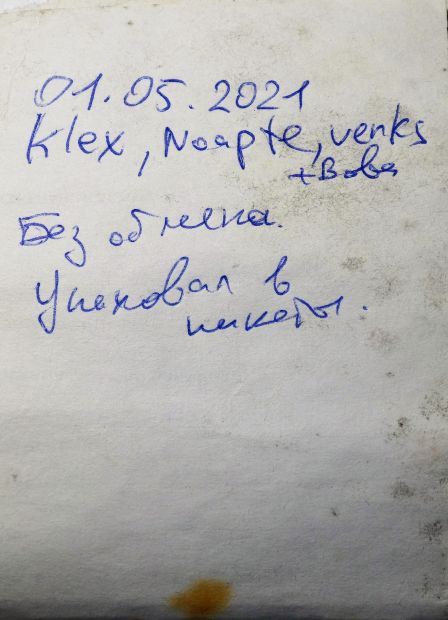 01.05.2021
Klex, Noapte, venks
+Вова
Без обмена.
Упаковал в
пакеты.